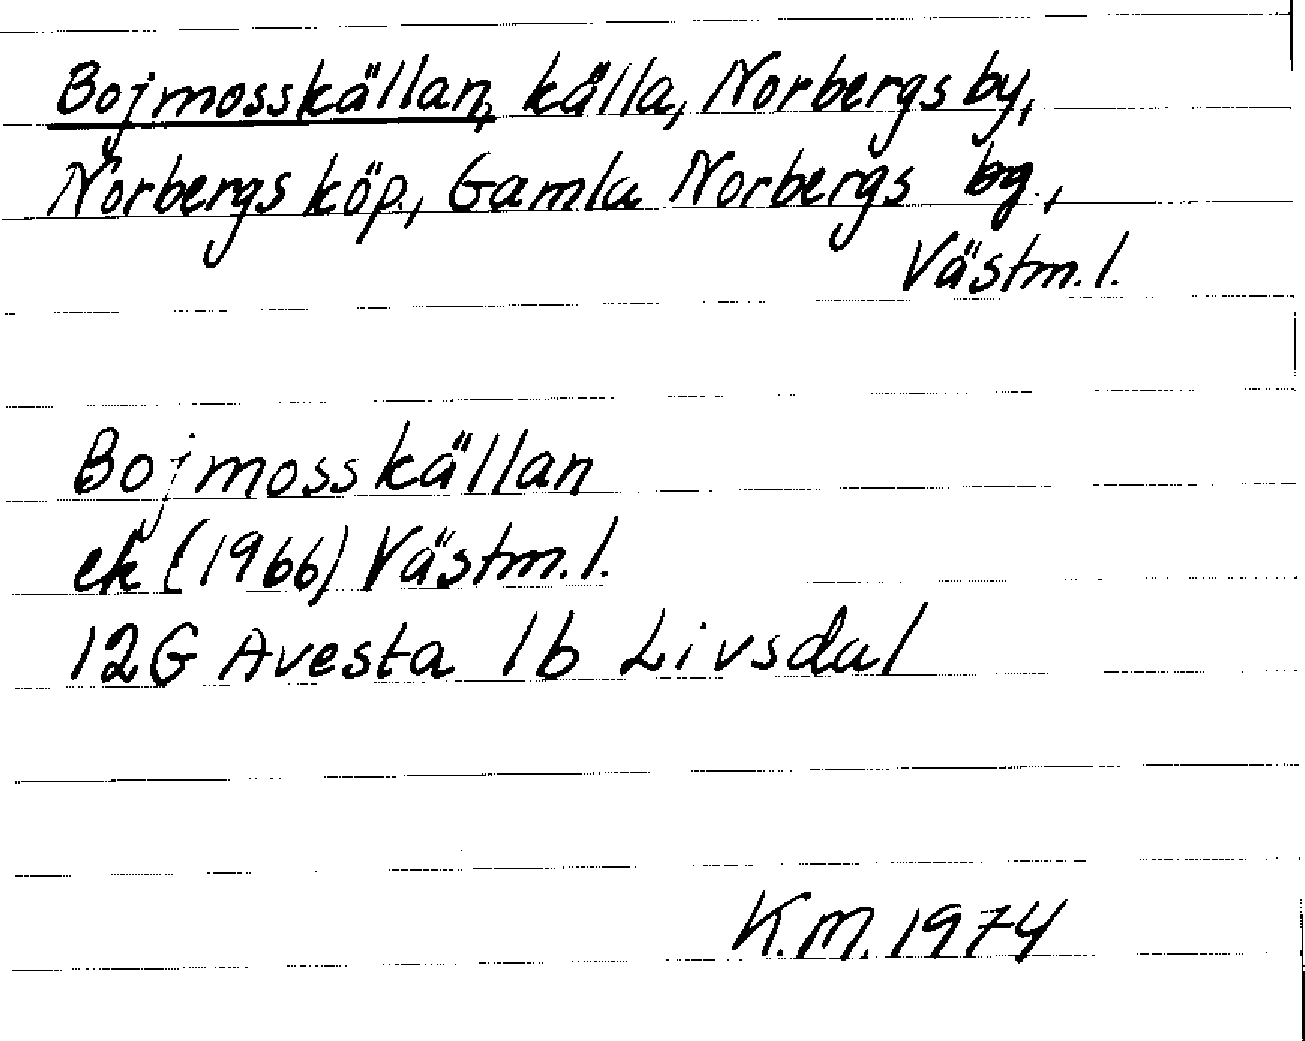 Bojmosskällan, källa, Norbergsby,
Norbergs köp., Gamla Norbergs bg.,
Västm.l.
Bojmosskällan
ek (1966) Västm.l.
12G Avesta 1b Livsdal
K.M. 1974